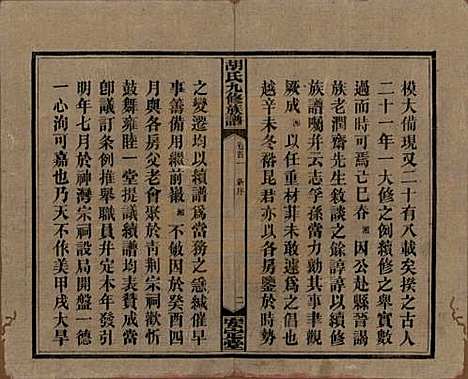 模大備現又二十有八載矣揆之古人
二十一年一大修之例續修之舉實數
過而時可焉己巳春湘因公赴縣晉謁
族老潤齋先生敘談之餘諄諄以續修
族譜囑并云志孚孫當力助其事書觀
厥成湘以任重材菲未敢遽為之倡也
越辛未冬裕昆君以各房鑒於時局
胡氏九修族譜
卷首
新序
二
安定堂
之變遷均以續譜為當務之急緘催早
事善備用繼前徽湘不敏因於癸酉四
月與各房父老會聚於青荆宗祠歡忻
鼓舞雍睦一堂提議續譜均表贊成當
卽議訂条例推舉職員幷定本冬發引
明年七月於神灣宗祠設局開盤一德
一心洵可嘉也乃天不佅美甲戌大旱